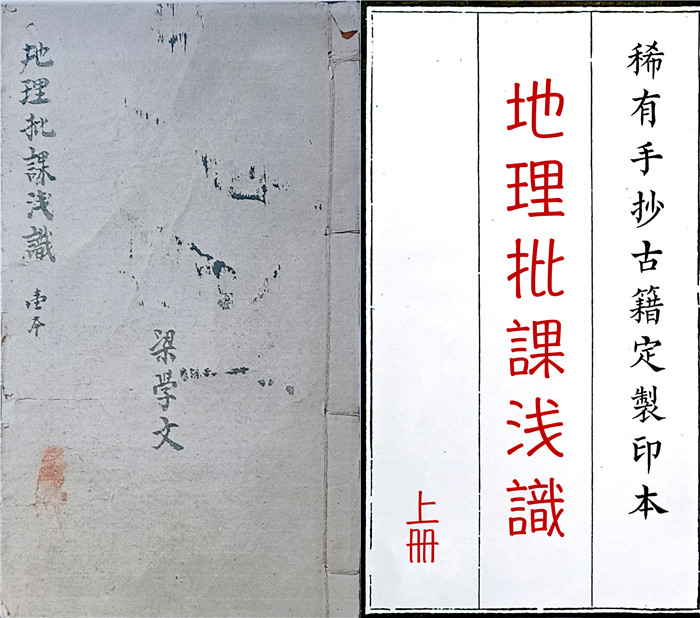 地理批課浅識
壹本
梁学文
稀有手抄古籍定製印本
地理批課浅識
上册